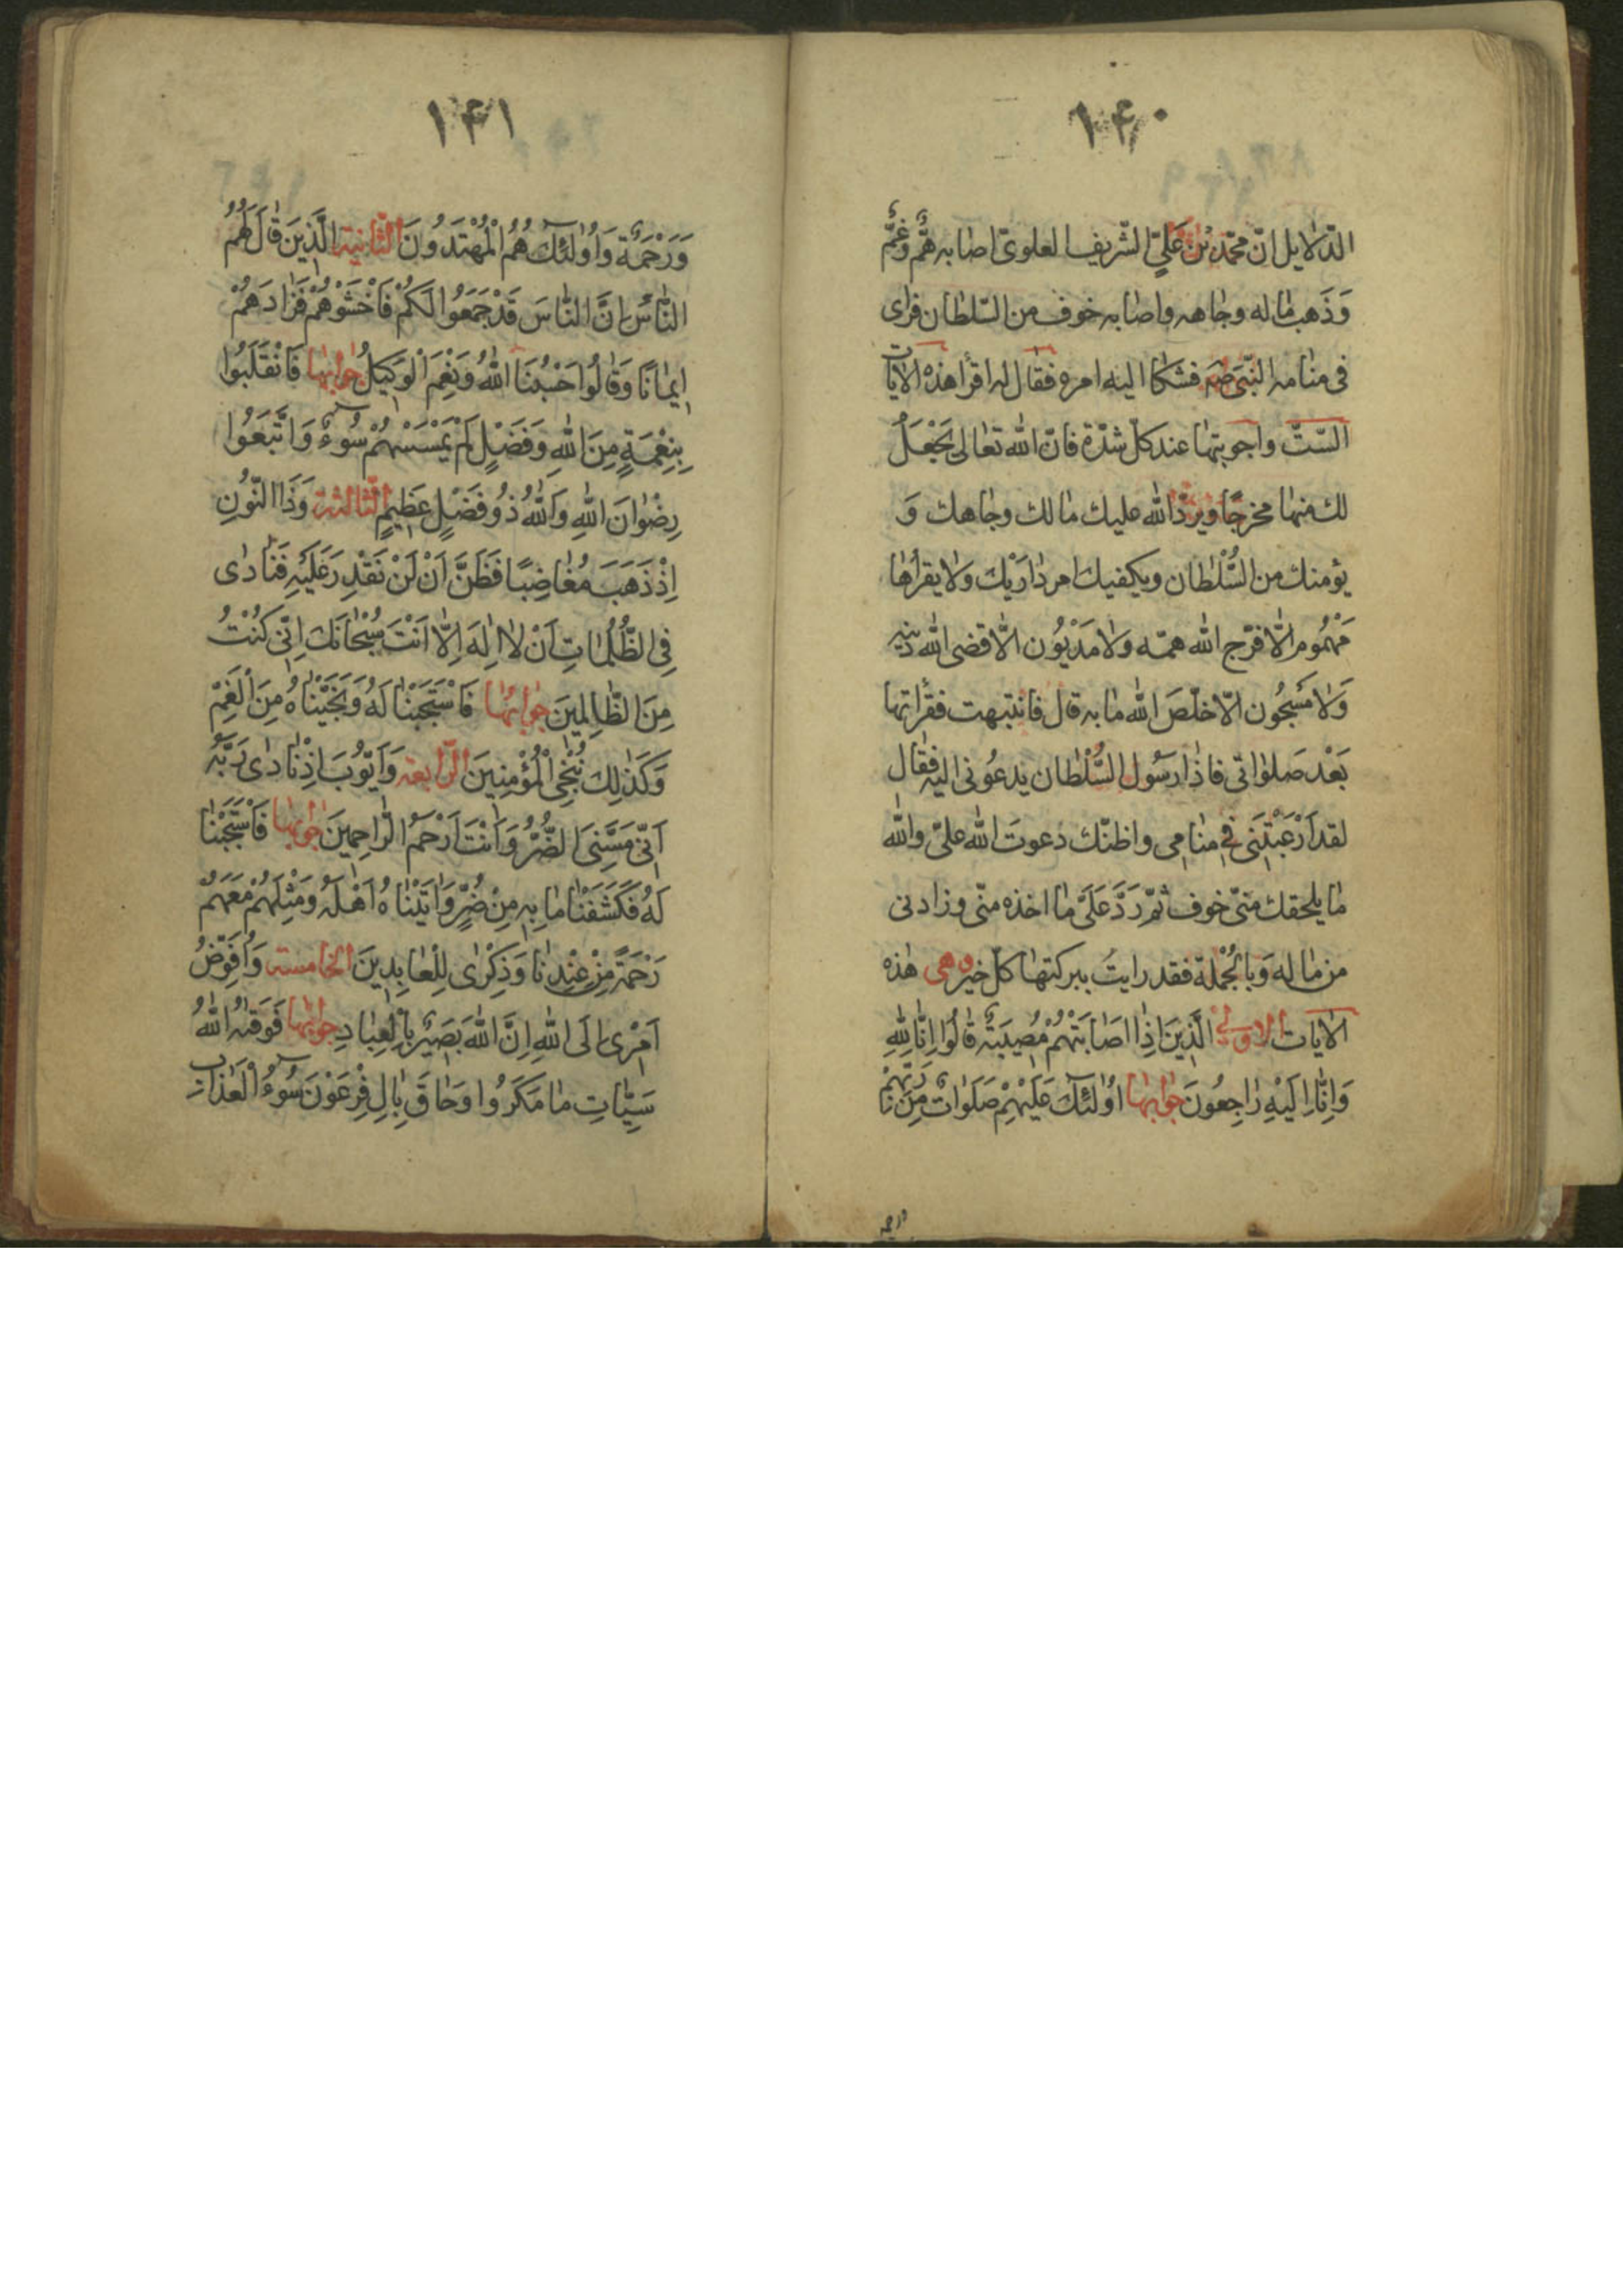 ١٤٠
الدّلايل انّ محمّد بْن عَليّ الشّريف العلوىّ اصابه هَمٌّ وَغَمٌّ
وَذَهب ماله وجاهه واصابه خوف من السّلطان فراى
فى منامه النّبىّ صم فشكا اليه امره فقال له اقرأ هذه الايات
السّتّ واجوبتها عند كلّ شدّة فانّ الله تعالى يَجْعَلُ
لك منها مخرجًا ويردّ الله عليك مالك وجاهك وَ
يؤمنك من السُّلْطان ويكفيك امر دارَيْك ولا يقرأها
مَهْمُوم الّا فرّج الله همّه ولا مَدْيُوُن الّا قضى الله دينه
وَلا مَسْجُون الّا خلّصَ الله ما به قال فانتبهت فقرأتها
بَعْد صَلواتى فاذا رسُول السُّلْطان يدعُونى اليه فقال
لقد اَرْعَبْتَنى فى منامى واظنّك دعوتَ الله علىّ والله
ما يلحقك منّى خوف ثمّ رَدَّ عَلَىَّ ما اخذه منّى وزادنى
من ماله وَبالجُمْلة فقد رايتُ ببركتها كلّ خير وهى هذه
الايات الاولى الَّذِينَ اِذا اصَابَتْهُمْ مُصِيبَةٌ قالُوا اِنّا لِلّهِ
وَاِنّا اِلَيْهِ راجِعُونَ جوابها اُولئِكَ عَلَيْهِمْ صَلَواتٌ مِنْ رَبِّهِمْ
١٤١
وَرَحْمَةٌ وَاُولئِكَ هُمُ الْمُهْتَدُونَ الثّانية الَّذِينَ قالَ لَهُمُ
النّاسُ اِنَّ النّاسَ قَدْ جَمَعُوا لَكُمْ فَاخْشَوْهُمْ فَزادَهُمْ
اِيمانًا وَقالُوا حَسْبُنَا اللهُ وَنِعْمَ الْوَكيلُ جوابها فَانْقَلَبُوا
بِنِعْمَةٍ مِنَ اللهِ وَفَضْلٍ لَمْ يَمْسَسْهُمْ سُوءٌ وَاتَّبَعُوا
رِضْوانَ اللهِ وَاللهُ ذُو فَضْلٍ عَظيمٍ الثّالثة وَذَا النُّونِ
اِذْ ذَهَبَ مُغاضِبًا فَظَنَّ اَنْ لَنْ نَقْدِرَ عَلَيْهِ فَنادى
فِى الظُّلُماتِ اَنْ لا اِلهَ اِلّا اَنْتَ سُبْحانَكَ اِنّى كُنْتُ
مِنَ الظّالِمينَ جوابها فَاسْتَجَبْنا لَهُ وَنَجَّيْناهُ مِنَ الْغَمِّ
وَكَذلِكَ نُنْجِى الْمُؤْمِنِينَ الرّابعة وَاَيُّوبَ اِذْ نادى رَبَّهُ
اَنّى مَسَّنِىَ الضُّرُّ وَاَنْتَ اَرْحَمُ الرّاحِمينَ جوابها فَاسْتَجَبْنا
لَهُ فَكَشَفْنا ما بِهِ مِنْ ضُرٍّ وَاتَيْناهُ اَهْلَهُ وَمِثْلَهُمْ مَعَهُمْ
رَحْمَةً مِنْ عِنْدِنا وَذِكْرى لِلْعابِدِينَ الخامسة وَاُفَوِّضُ
اَمْرى اِلَى اللهِ اِنَّ اللهَ بَصيرٌ بِالْعِبادِ جوابها فَوَقيهُ اللهُ
سَيِّئاتِ ما مَكَرُوا وَحاقَ بِالِ فِرْعَوْنَ سُوءُ الْعَذابِ